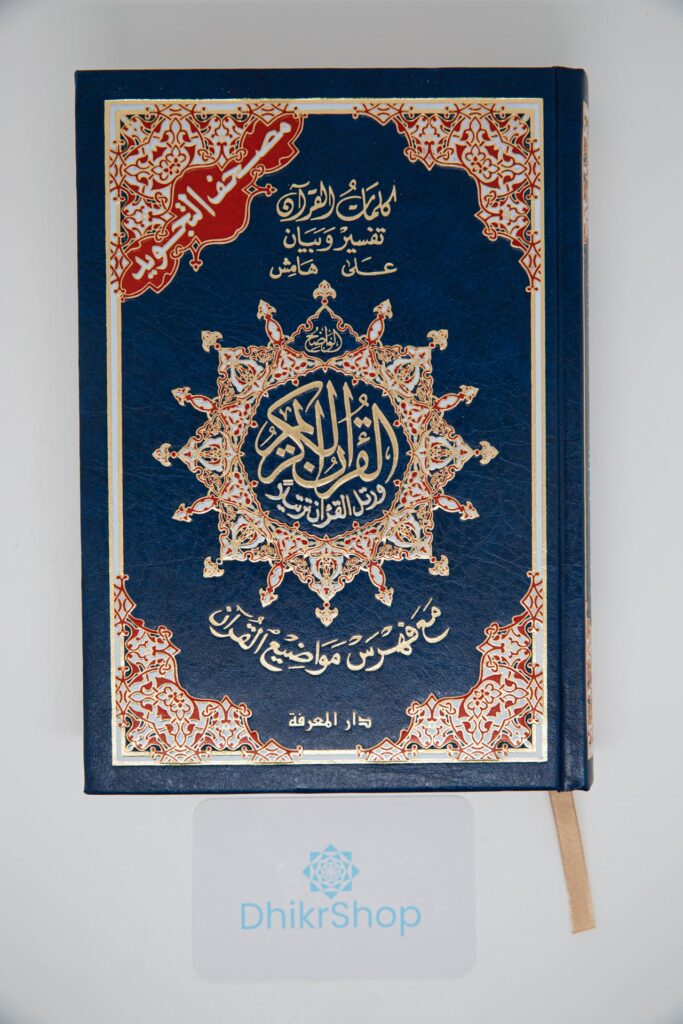 مصحف التجويد
كلمات القرآن
تفسير وبيان
على هامش
الواضح
القرآن الكريم
ورتل القرآن ترتيلا
مع فهرس مواضيع القرآن
دار المعرفة
DhikrShop